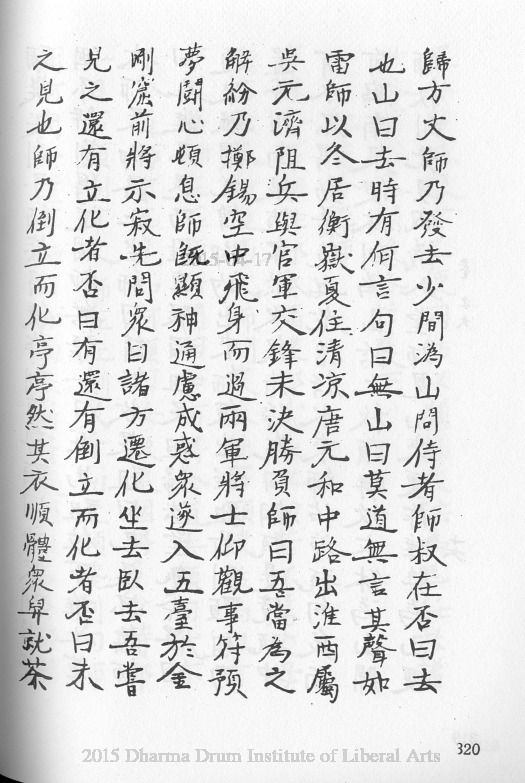 歸方丈師乃發去少間溈山問侍者師叔在否曰去
也山曰去時有何言句曰無山曰莫道無言其聲如
雷師以冬居衡嶽夏住清涼唐元和中路出淮西屬
吳元濟阻兵與官軍交鋒未決勝負師曰吾當為之
解紛乃擲錫空中飛身而過兩軍將士仰觀事符預
夢鬪心頓息師既顯神通慮成惑眾遂入五臺於金
剛窟前將示寂先問眾曰諸方遷化坐去臥去吾嘗
見之還有立化者否曰有還有倒立而化者否曰未
之見也師乃倒立而化亭亭然其衣順體眾舁就茶
320
2015 Dharma Drum Institute of Liberal Arts